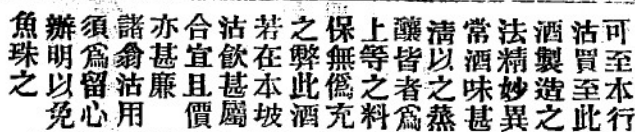 可至本行
沽買至此
酒製造之
法精妙異
常酒味甚
淸以之蒸
釀皆者爲
上等之料
保無僞充
之弊此酒
若在本坡
沽飲甚屬
合宜且價
亦甚廉
諸翁沽用
須爲留心
辦明以免
魚珠之